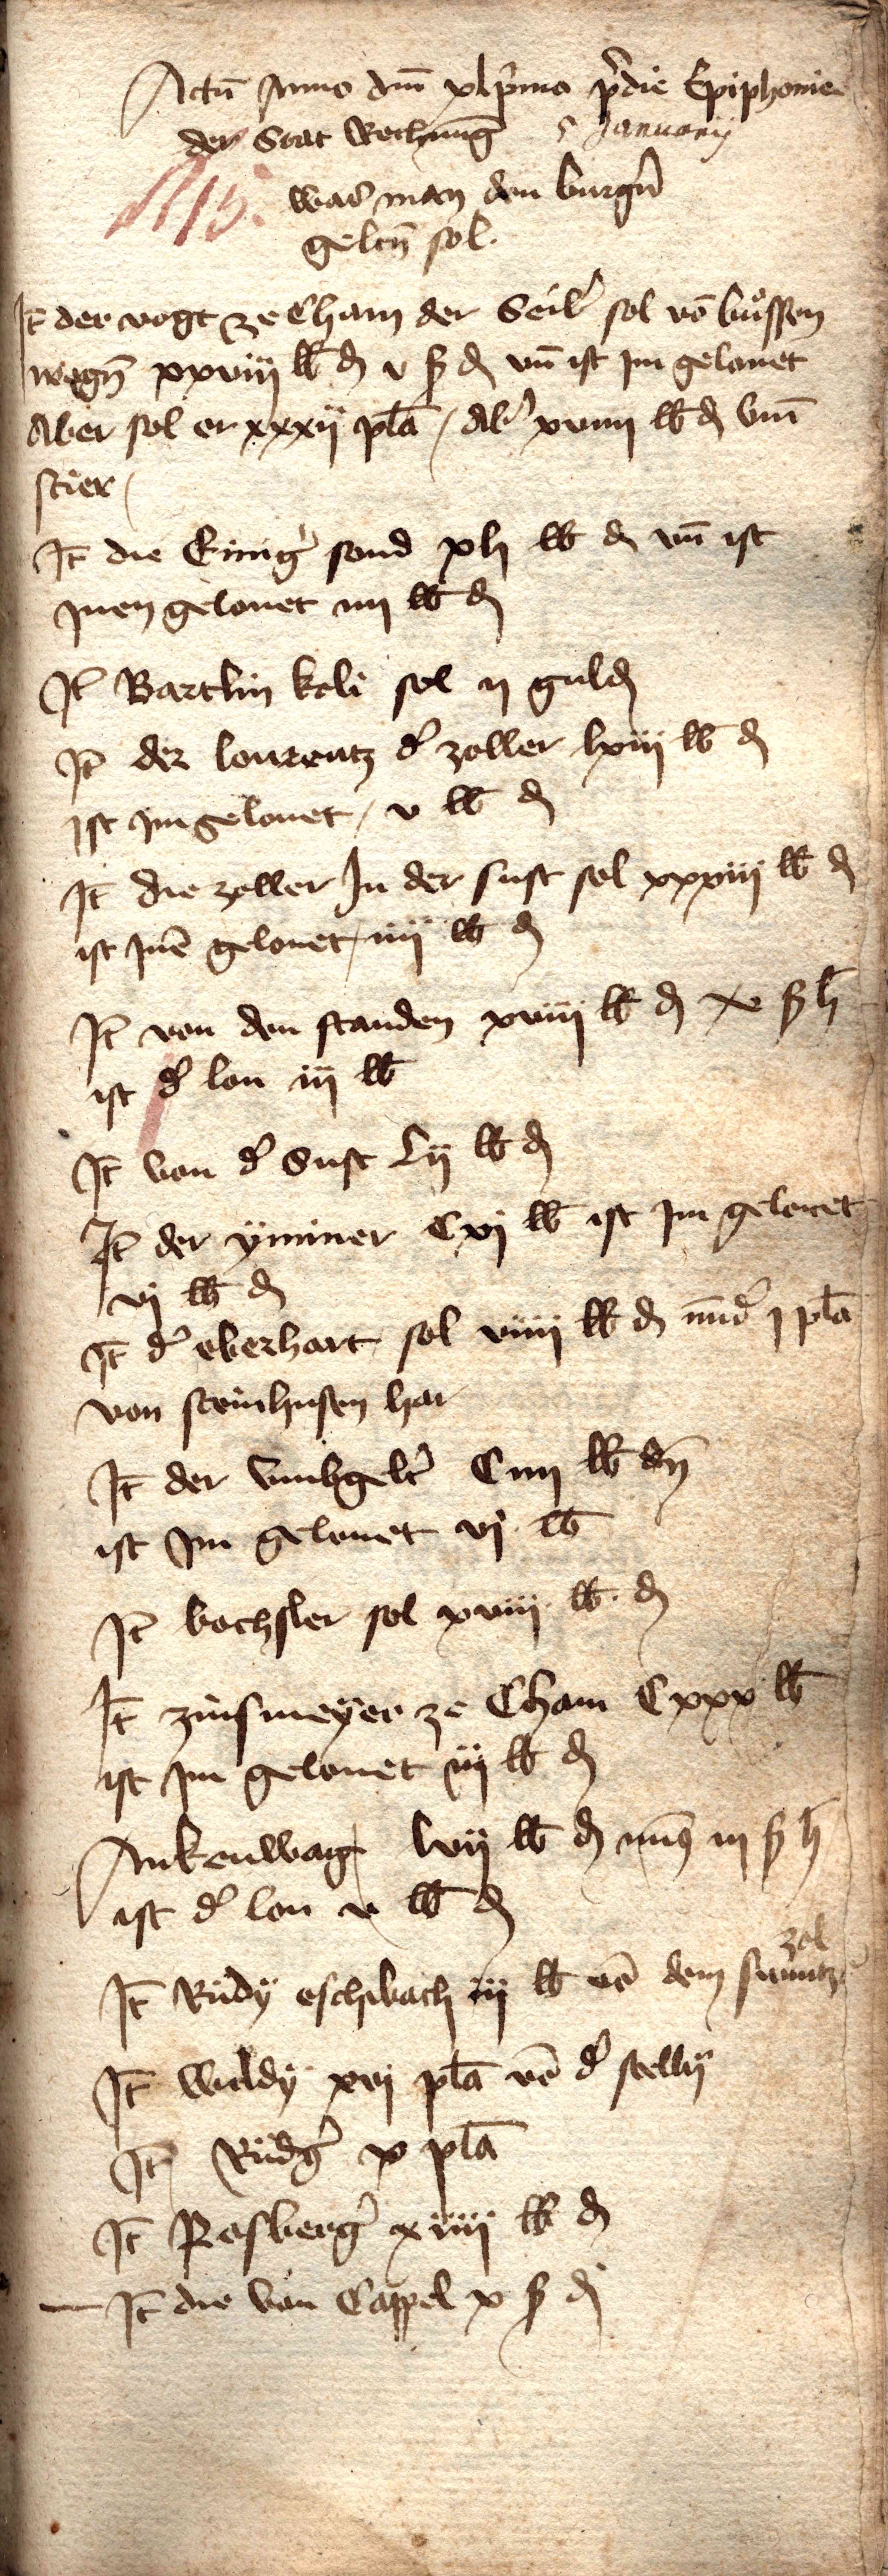 Actū Anno dm̄ xlprimo pͬdie Epiphonie
der Stat Rechnung 5 Januarij
15. was man den burgn̄
geltn̄ sol.
It̄ der vogt ze Cham der Seilͬ sol vō bůssen
wegn̄ xxviij lb ₰ v ß ₰ vn̄ ist jm gelonet
Aber sol er xxxij pla͞ / Abͬ xviiij lb ₰ vm̄
stier /
It̄ die Einigͬ sond xlij lb ₰ vn̄ ist
jnen gelonet iiij lb ₰
It̄ Bartlin koli sol ij guldn̄
It̄ der lourentz dͬ zoller lxiij lb ₰
ist jm gelonet / v lb ₰
It̄ die zoller In der sust sol xxxiij lb ₰
ist jnē gelonet / iiij lb ₰
It̄ von den standen xviij lb ₰ x ß h̄
ist dͬ lon iij lb
It̄ von dͬ Sust Lij lb ₰
It̄ der ÿminer Cxj lb ist jm gelonet
vj lb ₰
It̄ dͬ eberhart sol viiij lb ₰ mīdͬ j pla͞
von steinhusen har
It̄ der vmbgeltͬ Ciiij lb dn̄
ist jm gelonet vj lb
It̄ bachsler sol xviij lb ₰
It̄ zinsmeÿer ze Cham Cxxx lb
ist jm gelonet iij lb ₰
Ankenwag lvij lb ₰ min9 iij ß h̄
ist dͬ lon v lb ₰
zol
It̄ Růdÿ eschibach iij lb vō dem
It̄ Weldÿ xvj pla͞ vō dͬ stellÿ
It̄ Růdgͬ x pla͞
It̄ Rosbergͬ xiiij lb ₰
It̄ die von Cappel x ß ₰